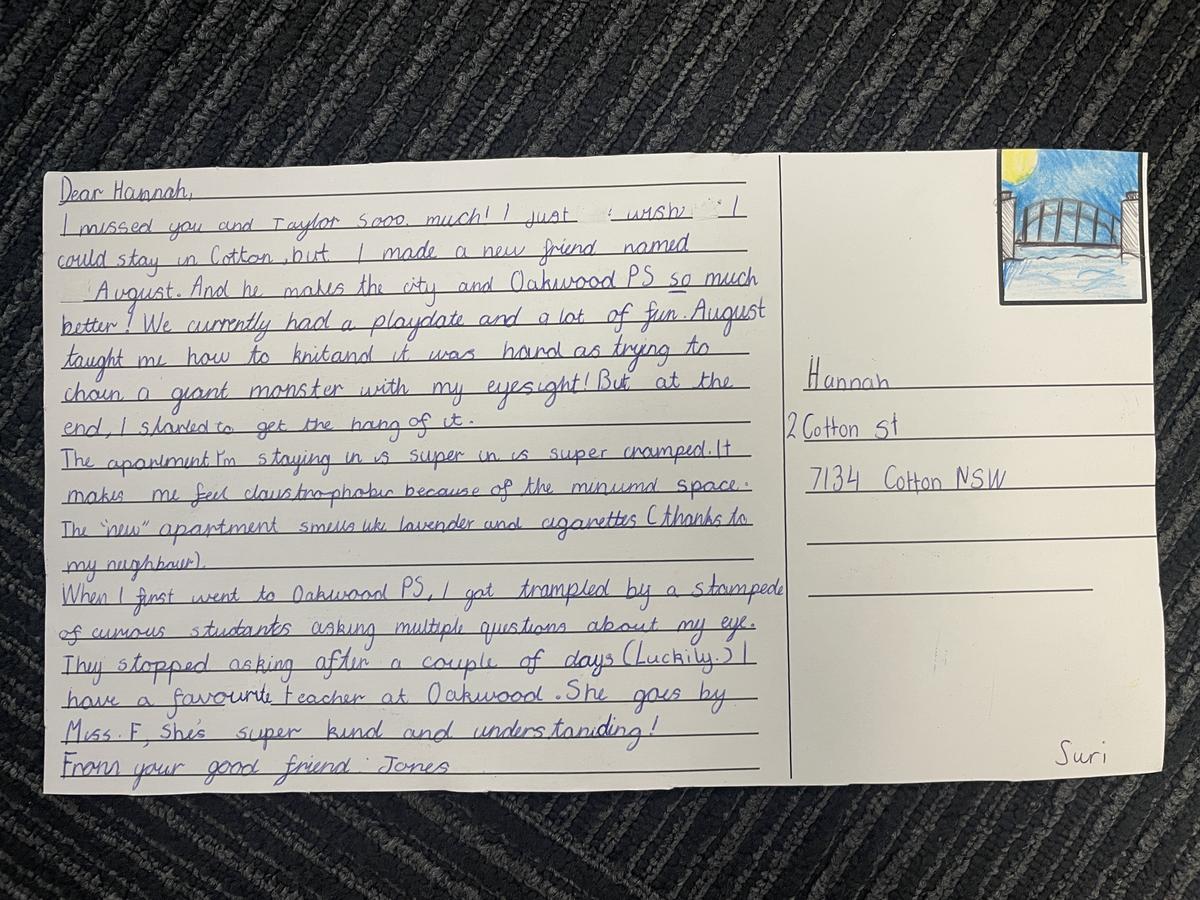 Dear Hannah,
I missed you and Taylor sooo. much! I just wish I
could stay in Cotton, but I made a new friend named
August. And he makes the city and Oakwood PS so much
better! We currently had a playdate and a lot of fun. August
taught me how to knit and it was hard as trying to
chain a giant monster with my eyesight! But at the
end, I started to get the hang of it.
The apartment I'm staying in is super in is super cramped. It
makes me feel claustrophobic because of the minumd space.
The "new" apartment smells like lavender and cigarettes (thanks to
my neighbour).
When I first went to Oakwood PS, I got trampled by a stampede
of curious studants asking multiple questions about my eye.
They stopped asking after a couple of days (Luckily.) I
have a favourite teacher at Oakwood. She goes by
Miss. F, she's super kind and understaniding!
From your good friend Jones
Hannah
2 Cotton st
7134 Cotton NSW
Suri